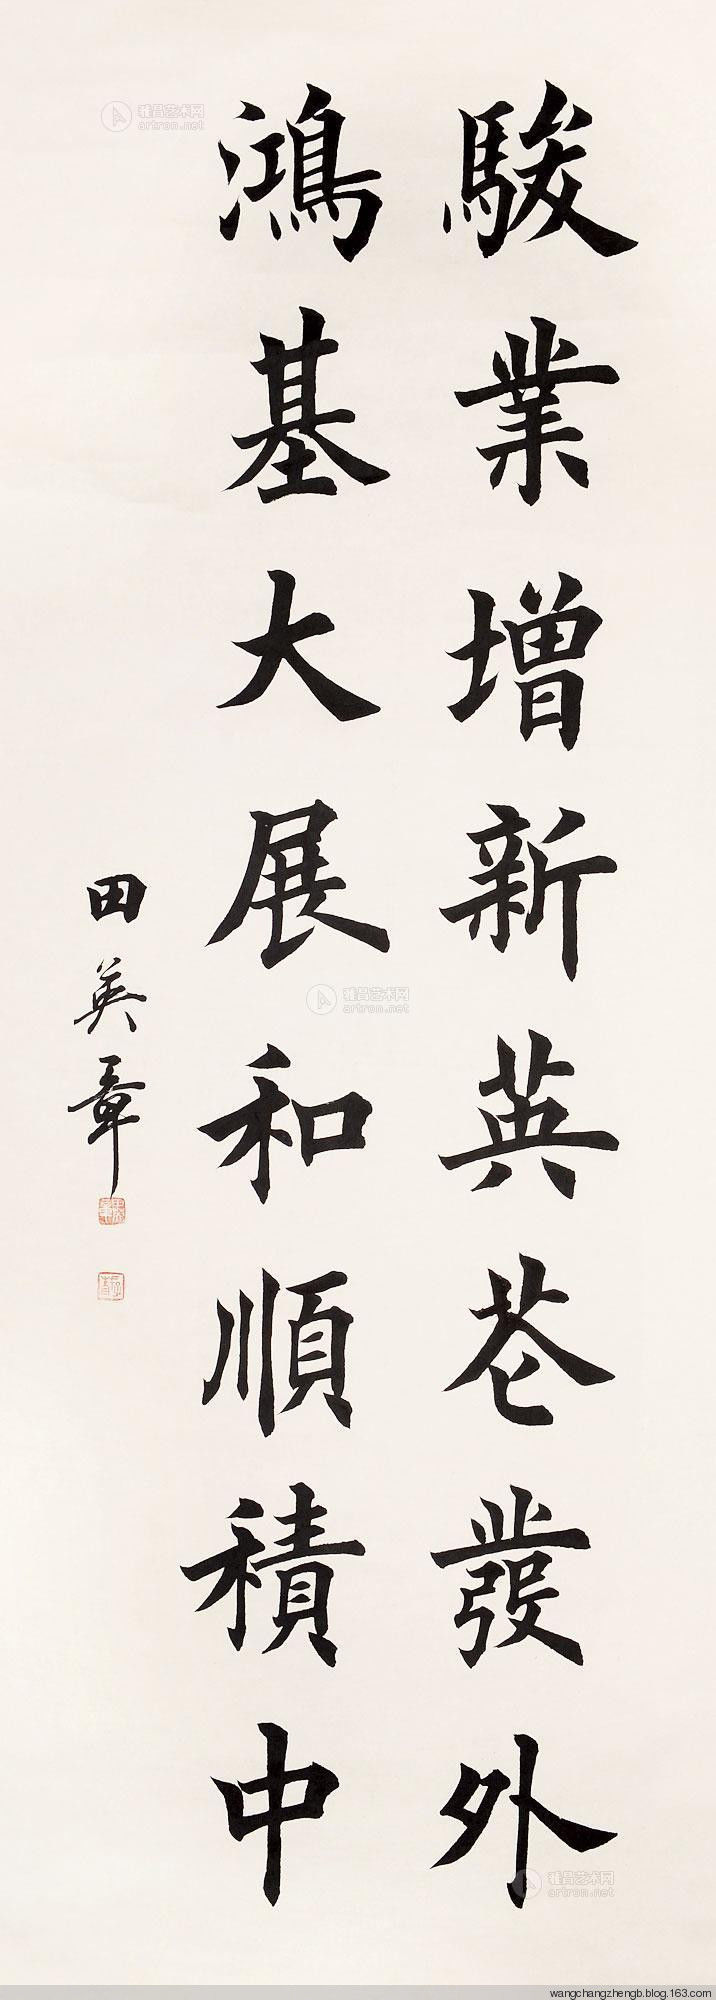 駿業增新英花發外
鴻基大展和順積中
田英章
雅昌艺术网
artron.net
雅昌艺术网
artron.net
雅昌艺术网
artron.net
wangchangzhengb.blog.163.com